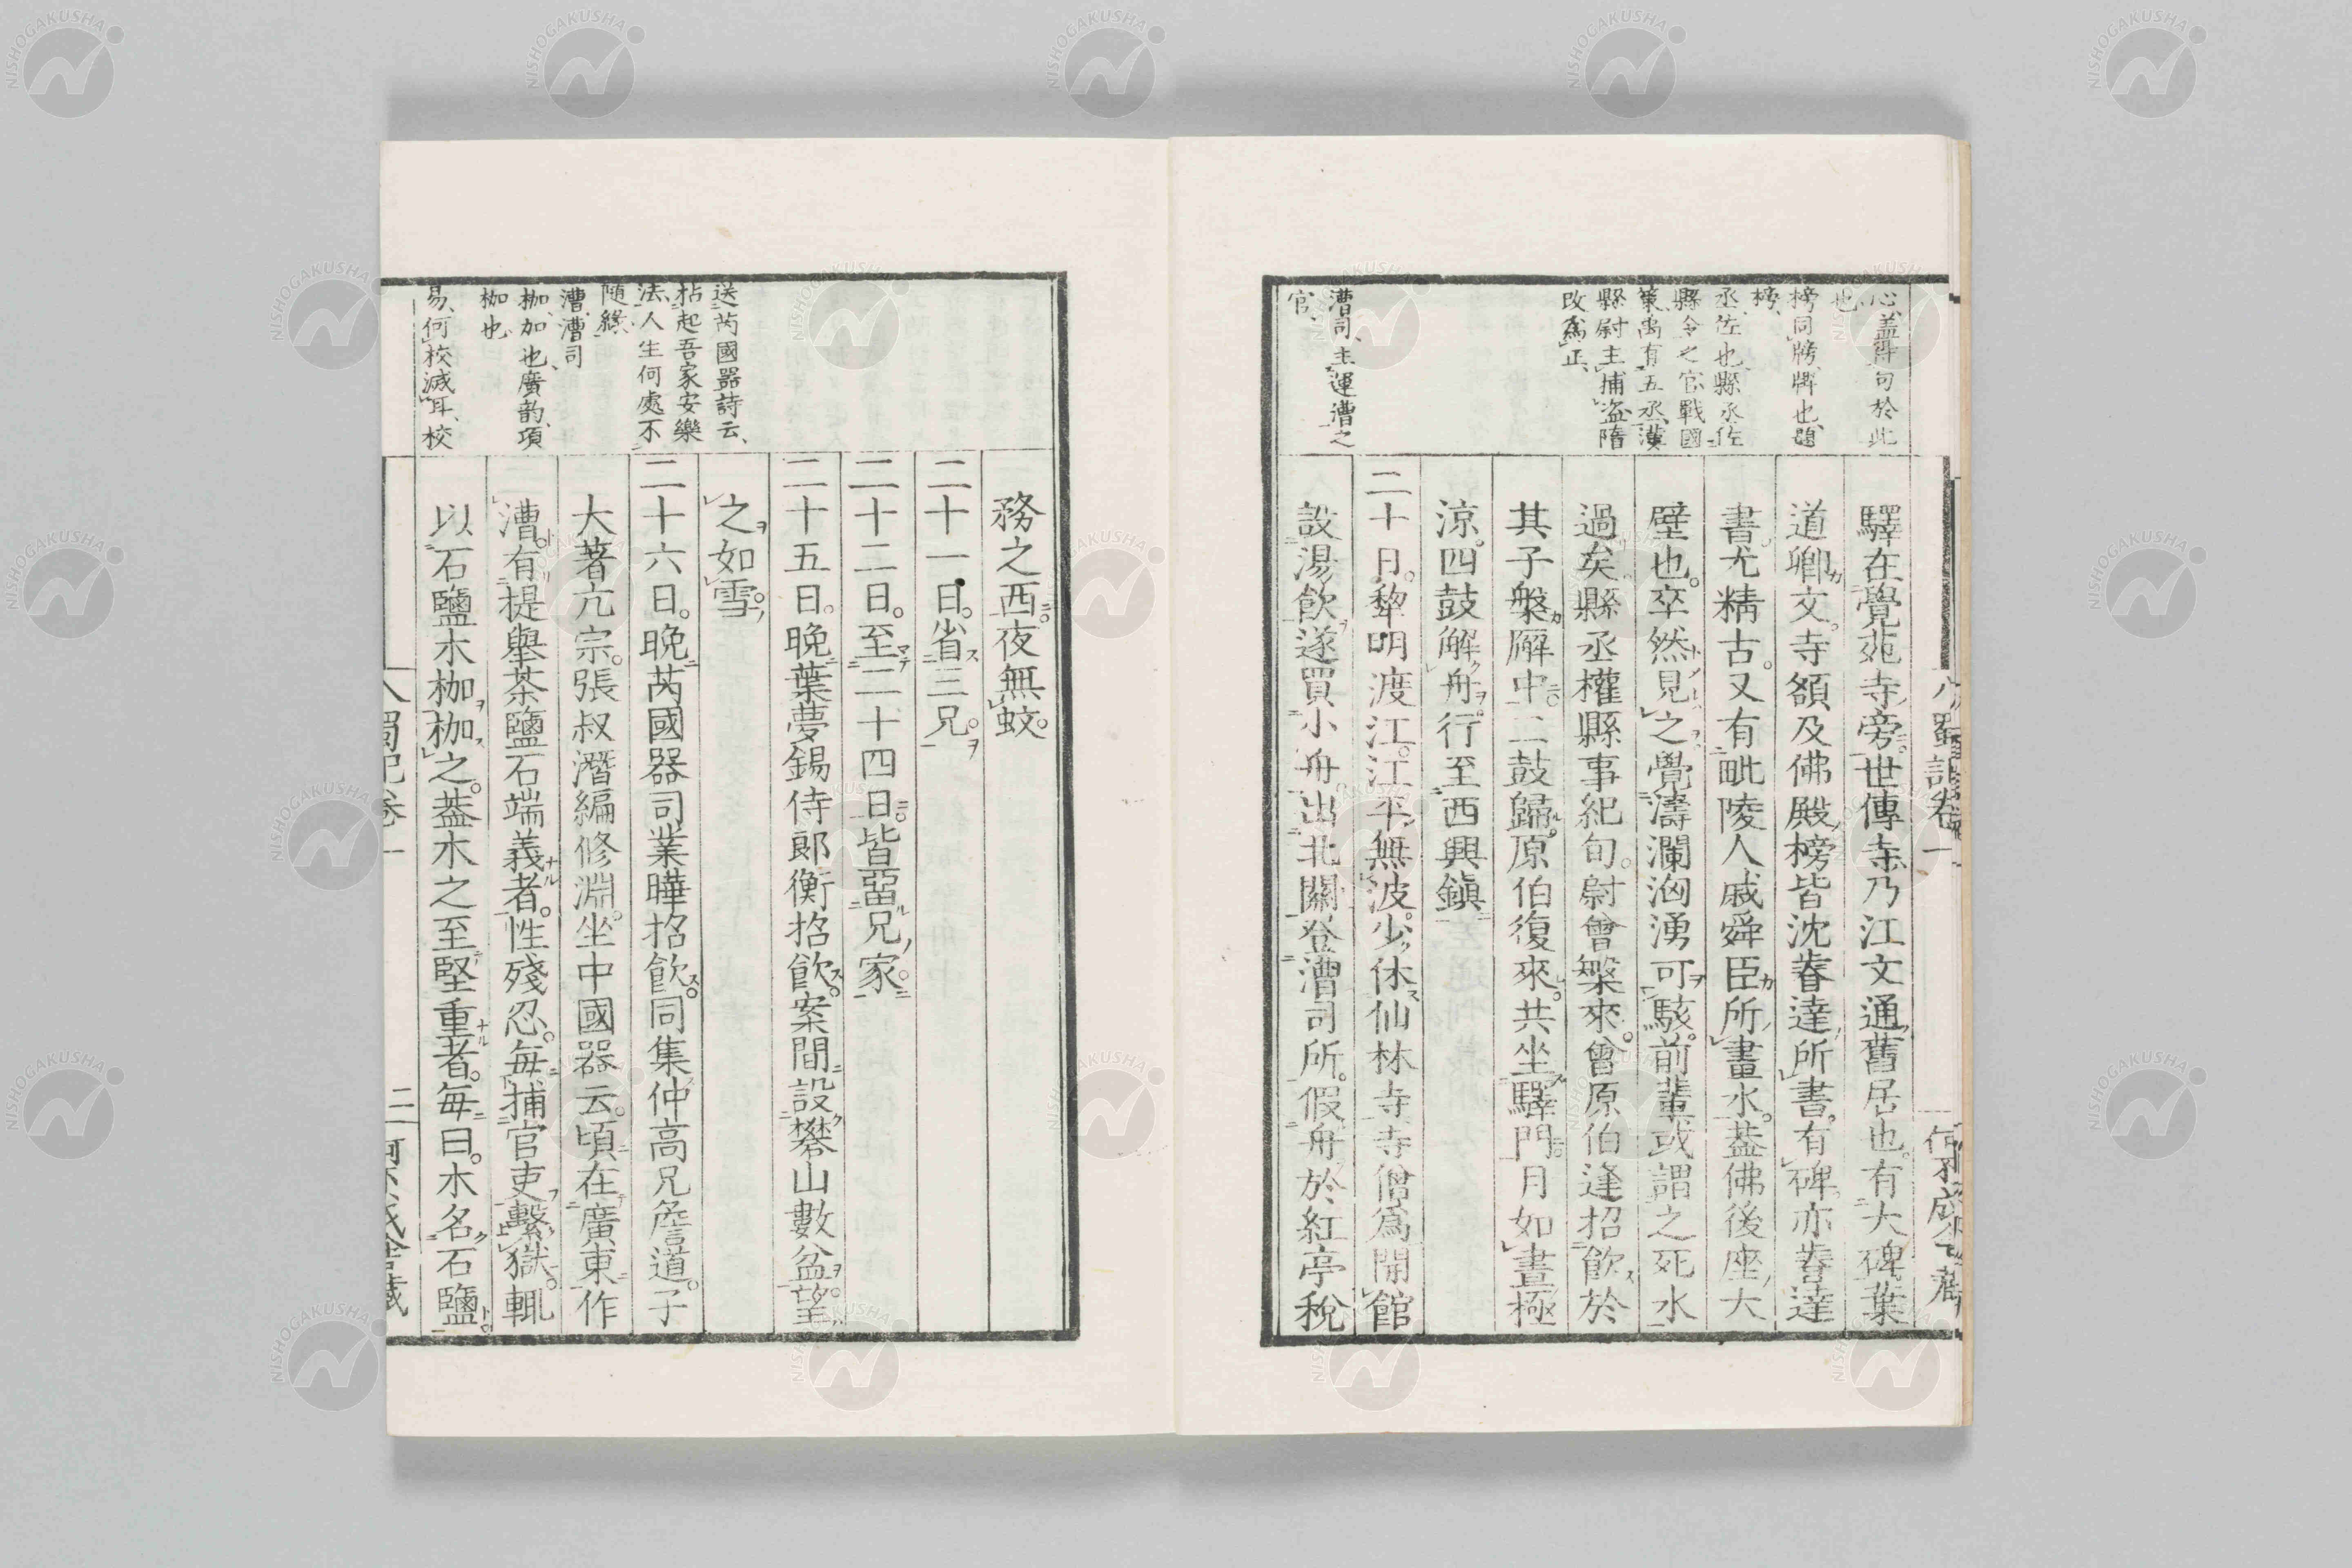 心、蓋得句於此
也、
榜同牓、牌也、題
榜、
丞、佐也、縣丞佐
縣令之官、戰國
策、禹有五丞、漢
縣尉主捕盗、隋
改爲正、
漕司、主運漕之
官、
驛在覺苑寺旁。世傳寺乃江文通舊居也。有大碑葉
道卿文。寺額及佛殿榜皆沈睿達所書。有碑亦睿達
書尤精古。又有毗陵人戚舜臣所畫水。葢佛後座大
壁也。卒然見之覺濤瀾洶湧可駭。前輩或謂之死水
過矣。縣丞權縣事紀旬。尉曾槃來。曾原伯逢招飲於
其子槃廨中。二鼓歸。原伯復來。共坐驛門。月如晝極
涼。四鼓解舟。行至西興鎭
二十日。黎明渡江。江平無波。少休仙林寺寺僧爲開館
設湯飲遂買小舟出北關登漕司所。假舟於紅亭稅
務之西。夜無蚊。
二十一日。省三兄。
二十二日。至二十四日。皆畱兄家。
二十五日。晚葉夢錫侍郎衡招飲。案間設礬山數盆望。
之如雪。
二十六日。晚芮國器司業曄招飲。同集仲高兄詹道。子
大著亢宗。張叔潛編修淵。坐中國器云。頃在廣東作
漕。有提舉茶鹽石端義者。性殘忍。每捕官吏繫獄。輒
以石鹽木枷枷之。葢木之至堅重者。每曰。木名石鹽
送芮國器詩云、
拈起吾家安樂
法、人生何處不
隨緣、
漕、漕司
枷、加也、廣韵、項
枷也、
易、何校滅耳、校
入蜀記卷一
二